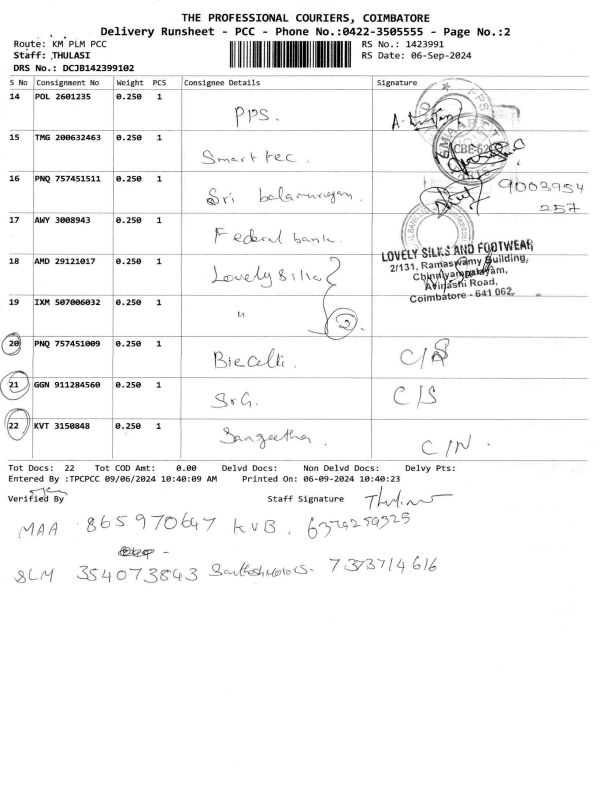 THE PROFESSIONAL COURIERS, COIMBATORE
Delivery Runsheet - PCC - Phone No.:0422-3505555 - Page No.:2
Route: KM PLM PCC RS No.: 1423991
Staff: THULASI RS Date: 06-Sep-2024
DRS No.: DCJB142399102
S No Consignment No Weight PCS Consignee Details Signature
14 POL 2601235 0.250 1 PPS.
15 TMG 200632463 0.250 1 Smart tec.
16 PNQ 757451511 0.250 1 Sri balamurugan. 9003954
257
17 AWY 3008943 0.250 1 Federal bank.
18 AMD 29121017 0.250 1 Lovely silks
LOVELY SILKS AND FOOTWEAR,
2/131, Ramaswamy Building,
Chinniyampalayam,
Avinashi Road,
Coimbatore - 641 062.
19 IXM 507006032 0.250 1 " 2
20 PNQ 757451009 0.250 1
21 GGN 911284560 0.250 1 C/S
22 KVT 3150848 0.250 1 Sangeetha. C/N.
Tot Docs: 22 Tot COD Amt: 0.00 Delvd Docs: Non Delvd Docs: Delvy Pts:
Entered By :TPCPCC 09/06/2024 10:40:09 AM Printed On: 06-09-2024 10:40:23
Verified By Staff Signature
MAA 865970647 KVB. 6374259325
SLM 354073843 7373714616